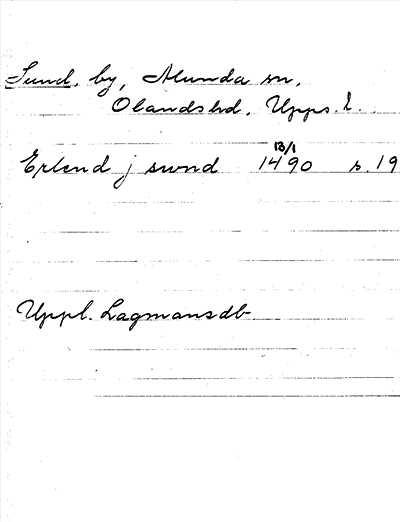 Sund, by, Alunda sn,
Olands hd, Upps. l.
13/1
Erlend j swnd 1490 s. 19
Uppl. Lagmansdb